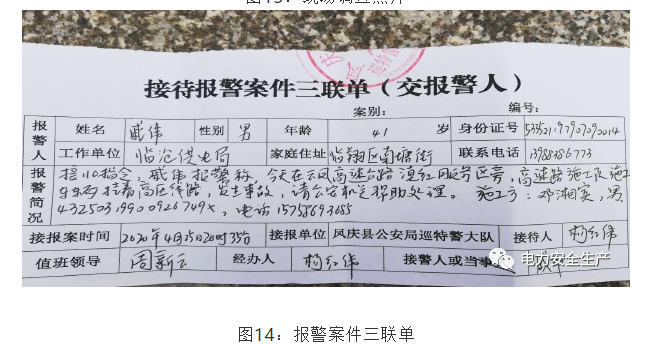 图13：现场调查照片
接待报警案件三联单（交报警人）
案别： 编号：
报警人 姓名 戚伟 性别 男 年龄 41 岁 身份证号
工作单位 临沧供电局 家庭住址 临翔区南塘街 联系电话
报警简况 接110指令，戚伟报警称，今天在云凤高速公路滇红 服务区旁，高速路施工队施工
挂着高压线路，发生事故，请公安机关帮助处理。 施工方：邓湘宾，男，
43250319900926749X，电话15758693685
接报案时间 2020年4月25日20时35分 接报单位 凤庆县公安局巡特警大队 接待人 杨红伟
值班领导 周新云 经办人 杨红伟 接警人或当事
电力安全生产
图14：报警案件三联单